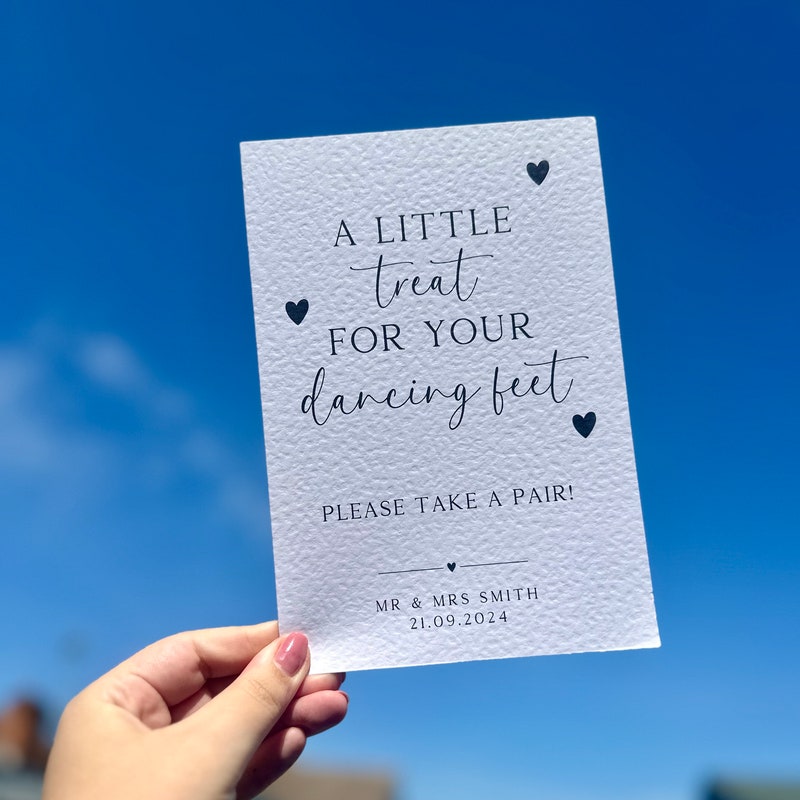 A LITTLE
treat
FOR YOUR
dancing feet
PLEASE TAKE A PAIR!
MR & MRS SMITH
21.09.2024